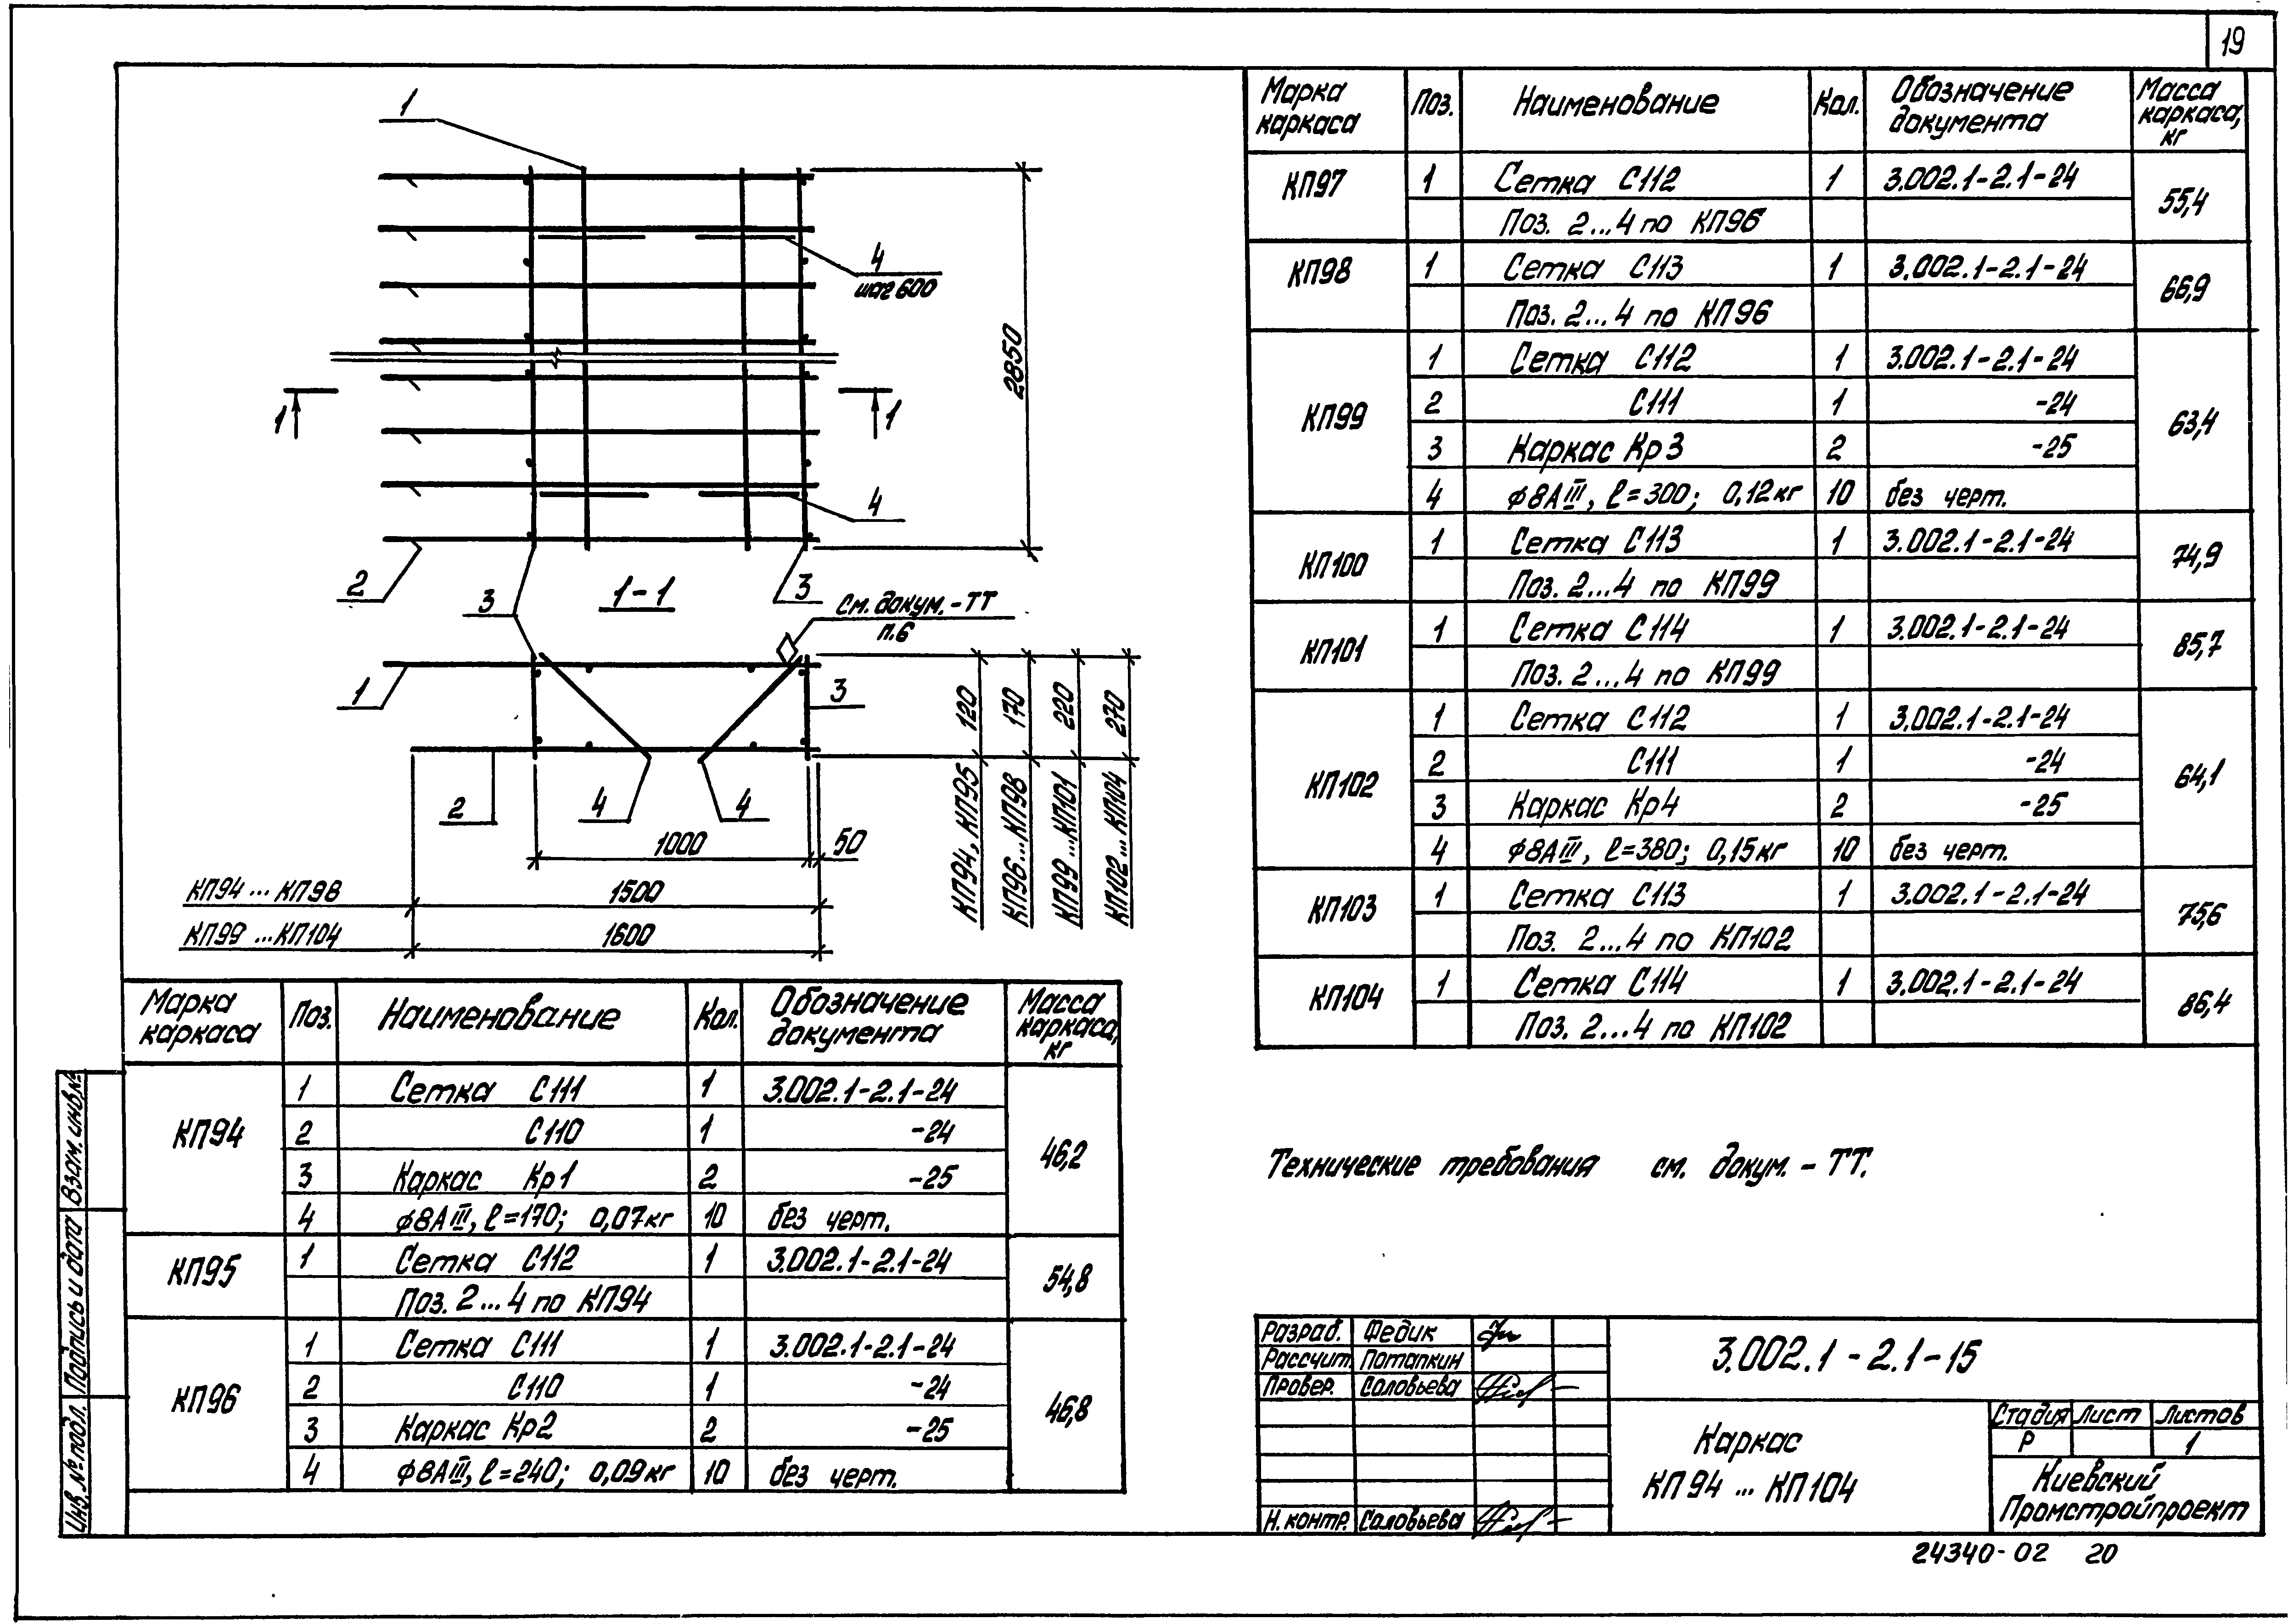 19
1
4
шаг 600
2850
1
1
4
2
3
1-1
3
См. докум. -ТТ
п.6
1
3
120
170
220
270
КП94, КП95
КП96...КП98
КП99...КП101
КП102...КП104
2
4
4
1000
50
КП94...КП98
1500
КП99...КП104
1600
Марка каркаса Поз. Наименование Кол. Обозначение документа Масса каркаса, кг
КП94 1 Сетка С111 1 3.002.1-2.1-24 46,2
2 С110 1 -24
3 Каркас Кр1 2 -25
4 ϕ8АIII, ℓ=170; 0,07кг 10 без черт.
КП95 1 Сетка С112 1 3.002.1-2.1-24 54,8
Поз. 2...4 по КП94
КП96 1 Сетка С111 1 3.002.1-2.1-24 46,8
2 С110 1 -24
3 Каркас Кр2 2 -25
4 ϕ8АIII, ℓ=240; 0,09кг 10 без черт.
Марка каркаса Поз. Наименование Кол. Обозначение документа Масса каркаса, кг
КП97 1 Сетка С112 1 3.002.1-2.1-24 55,4
Поз. 2...4 по КП96
КП98 1 Сетка С113 1 3.002.1-2.1-24 66,9
Поз. 2...4 по КП96
КП99 1 Сетка С112 1 3.002.1-2.1-24 63,4
2 С111 1 -24
3 Каркас Кр3 2 -25
4 ϕ8АIII, ℓ=300; 0,12кг 10 без черт.
КП100 1 Сетка С113 1 3.002.1-2.1-24 74,9
Поз. 2...4 по КП99
КП101 1 Сетка С114 1 3.002.1-2.1-24 85,7
Поз. 2...4 по КП99
КП102 1 Сетка С112 1 3.002.1-2.1-24 64,1
2 С111 1 -24
3 Каркас Кр4 2 -25
4 ϕ8АIII, ℓ=380; 0,15кг 10 без черт.
КП103 1 Сетка С113 1 3.002.1-2.1-24 75,6
Поз. 2...4 по КП102
КП104 1 Сетка С114 1 3.002.1-2.1-24 86,4
Поз. 2...4 по КП102
Технические требования см. докум. - ТТ.
Взам. инв.№
Подпись и дата
Инв. № подл.
Разраб. Федик
Рассчит. Потапкин
Провер. Соловьева
Н. контр. Соловьева
3.002.1-2.1-15
Каркас
КП94...КП104
Стадия Лист Листов
Р 1
Киевский
Промстройпроект
24340-02 20